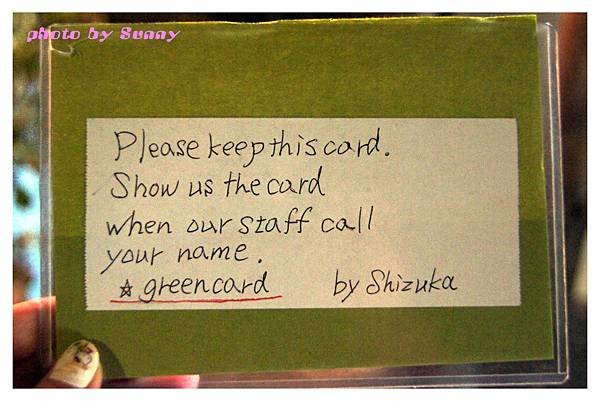 photo by Sunny
Please keep this card.
Show us the card
when our staff call
your name.
☆ greencard by Shizuka